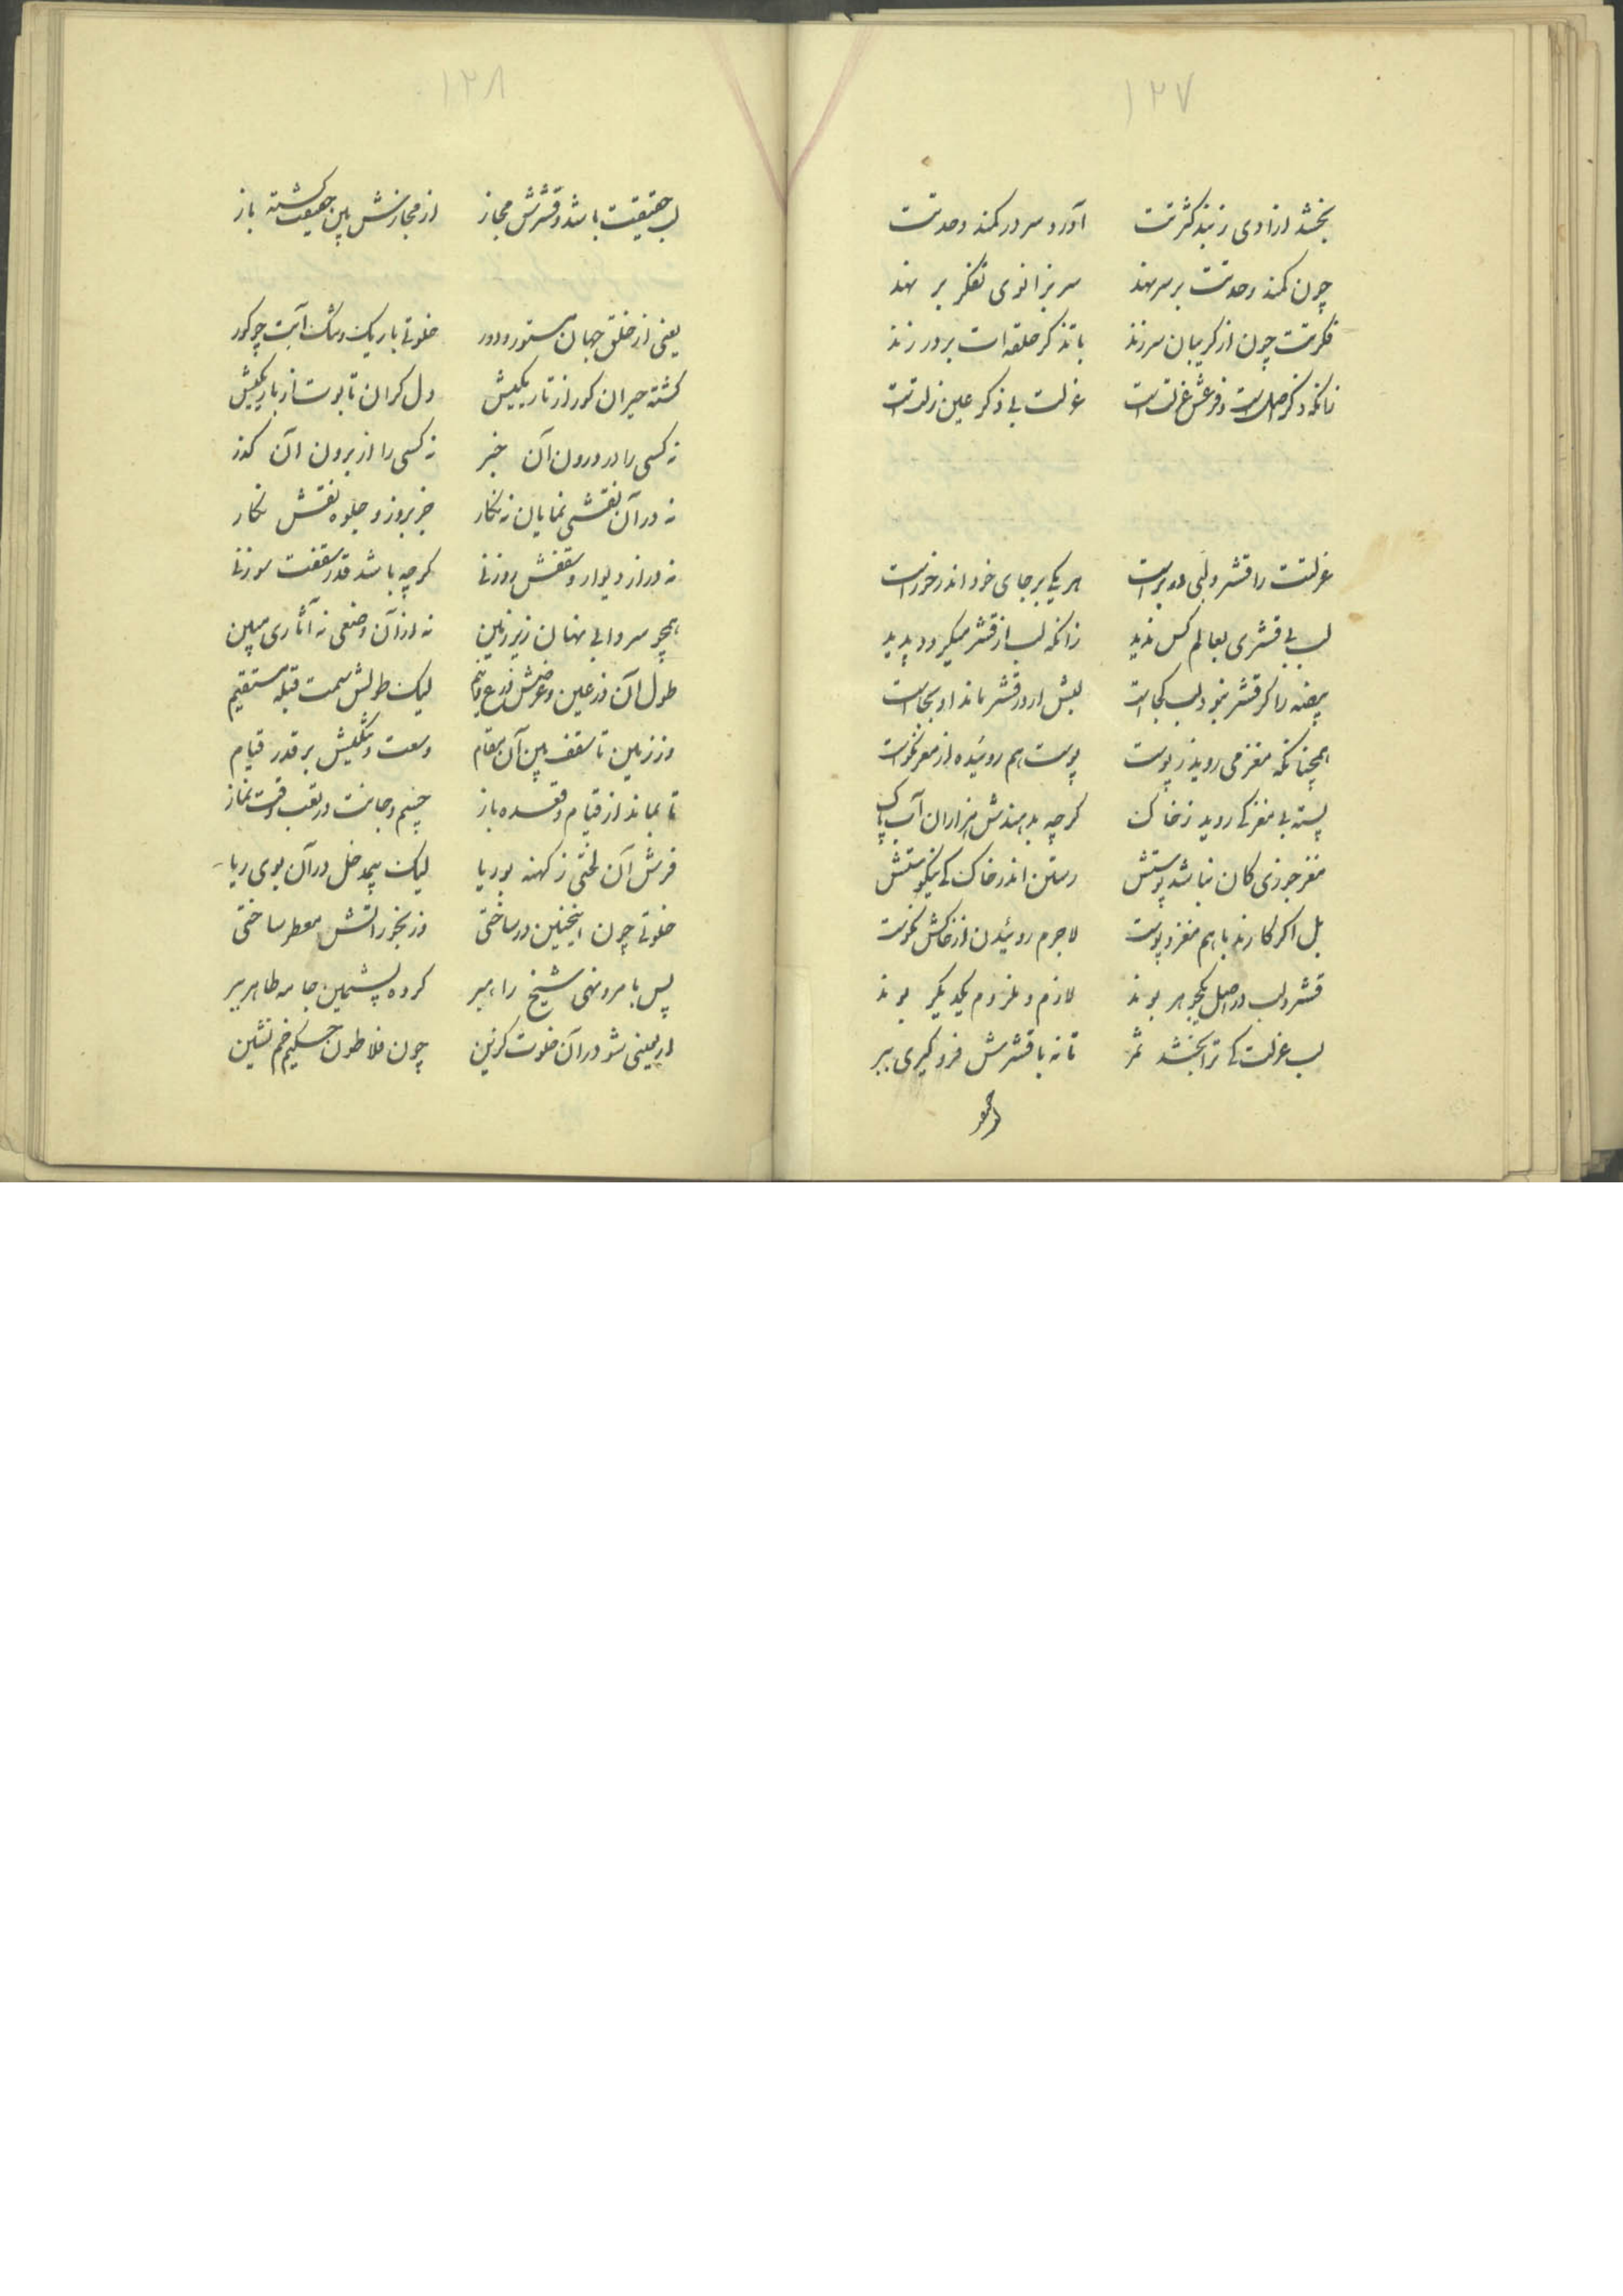 ۱۲۷
بخشد ازادی ز بند کثرتت آورد سر در کمند وحدتت
چون کمند وحدتت بر سر نهد سر بزانوی تفکر بر نهد
فکرتت چون از کریبان سر زند با تذکر حلقه ات بر در زند
زانکه ذکر اصل است و فرعش عزلت است عزلت بی ذکر عین زلت است
عزلتت را قشر و لبی در بر است هر یکی بر جای خود اندر خور است
لب بی قشری بعالم کس ندید زانکه لب از قشر میکردد پدید
بیضه را کر قشر نبود لب کجاست لبش ار در قشر ماند او بجاست
همچنانکه مغز می روید ز پوست پوست هم روئیده از مغز نکوست
پسته بی مغز کی روید ز خاک کرچه بدهندش هزاران آب پاک
مغز جوزی کان نباشد پوستش رستن اندر خاک کی نیکوستش
بل اکر کارند با هم مغز و پوست لاجرم روئیدن از خاکش نکوست
قشر و لب در اصل یکجوهر بوند لازم و ملزوم یکدیکر بوند
لب عزلت کی ترا بخشد ثمر تا نه با قشرش فرو کیری ببر
۱۲۸
لب حقیقت باشد و قشرش مجاز از مجازش بین حقیقت کشته باز
یعنی از خلق جهان مستور و دور خلوتی باریک و تنک آیت چو کور
کشته حیران کور از تاریکیش دل کران تابوت از باریکیش
نه کسی را در درون آن خبر نه کسی را از برون آن کذر
نه در آن نقشی نمایان نه نکار جز بروز و جلوه نقش نکار
نه در از دیوار و سقفش روزنی کرچه باشد قدر سقفت سوزنی
همچو سردابی نهان زیر زمین نه از آن وضعی نه آثاری مبین
طول آن ذرعین و عرضش ذرع و نیم لیک طولش سمت قبله مستقیم
وز زمین تا سقف بین آن مقام وسعت و تنکیش بر قدر قیام
تا بماند از قیام و قعده باز جسم و جانت در تعب وقت نماز
فرش آن لختی ز کهنه بوریا لیک بیمدخل در آن بوی ریا
خلوتی چون اینچنین در ساختی وز بخور انتش معطر ساختی
پس با مر و نهی شیخ راهبر کرده پشمین جامه طاهر ببر
اربعینی شو در آن خلوت کزین چون فلاطون حکیم خم نشین